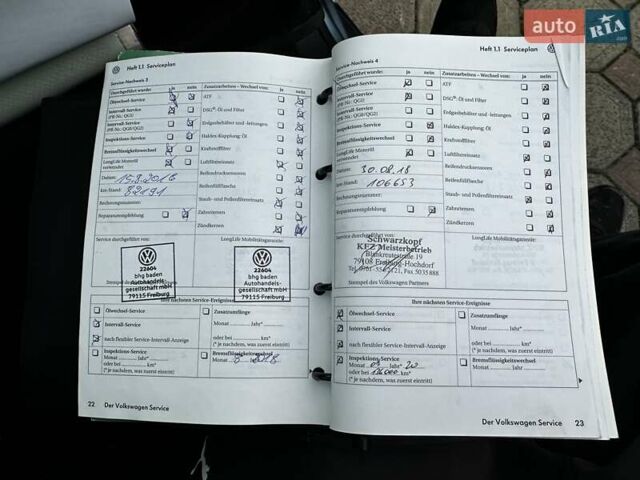 auto RIA.com
Heft 1.1 Serviceplan
Service-Nachweis 3
Durchgeführt wurde: ja nein
Ölwechsel-Service
Intervall-Service
(PR-Nr.: QG1)
Intervall-Service
(PR-Nr.: QG0/QG2)
Inspektions-Service
Bremsflüssigkeitswechsel
LongLife Motoröl
verwendet
Datum: 15.9.2016
km-Stand: 82191
Rechnungsnummer:
Reparaturempfehlung
Zusatzarbeiten - Wechsel von: ja nein
ATF
DSG®: Öl und Filter
Erdgasbehälter und -leitungen
Haldex-Kupplung: Öl
Kraftstofffilter
Luftfiltereinsatz
Reifendrucksensoren
Reifenfüllflasche
Staub- und Pollenfiltereinsatz
Zahnriemen
Zündkerzen
Service durchgeführt von:
22604
bhg baden
Autohandels-
gesellschaft mbH
79115 Freiburg
Stempel des
LongLife Mobilitätsgarantie:
22604
bhg baden
Autohandels-
gesellschaft mbH
79115 Freiburg
Ihre nächsten Service-Ereignisse
Ölwechsel-Service
Intervall-Service
nach flexibler Service-Intervall-Anzeige
Inspektions-Service
Monat Jahr*
oder bei km*
(* je nachdem, was zuerst eintritt)
Zusatzumfänge
Monat Jahr*
oder bei km*
(* je nachdem, was zuerst eintritt)
Bremsflüssigkeitswechsel
Monat Jahr 2018
22 Der Volkswagen Service
Heft 1.1 Serviceplan
Service-Nachweis 4
Durchgeführt wurde: ja nein
Ölwechsel-Service
Intervall-Service
(PR-Nr.: QG1)
Intervall-Service
(PR-Nr.: QG0/QG2)
Inspektions-Service
Bremsflüssigkeitswechsel
LongLife Motoröl
verwendet
Datum: 30.08.18
km-Stand: 106653
Rechnungsnummer:
Reparaturempfehlung
Zusatzarbeiten - Wechsel von: ja nein
ATF
DSG®: Öl und Filter
Erdgasbehälter und -leitungen
Haldex-Kupplung: Öl
Kraftstofffilter
Luftfiltereinsatz
Reifendrucksensoren
Reifenfüllflasche
Staub- und Pollenfiltereinsatz
Zahnriemen
Zündkerzen
Service durchgeführt von:
LongLife Mobilitätsgarantie:
Schwarzkopf
KFZ Meisterbetrieb
Blankreutestraße 19
79108 Freiburg-Hochdorf
Fax 5035888
Stempel des Volkswagen Partners
Ihre nächsten Service-Ereignisse
Ölwechsel-Service
Intervall-Service
nach flexibler Service-Intervall-Anzeige
Inspektions-Service
Monat Jahr* 20
oder bei km*
(* je nachdem, was zuerst eintritt)
Zusatzumfänge
Monat Jahr*
oder bei km*
(* je nachdem, was zuerst eintritt)
Bremsflüssigkeitswechsel
Monat Jahr
Der Volkswagen Service 23